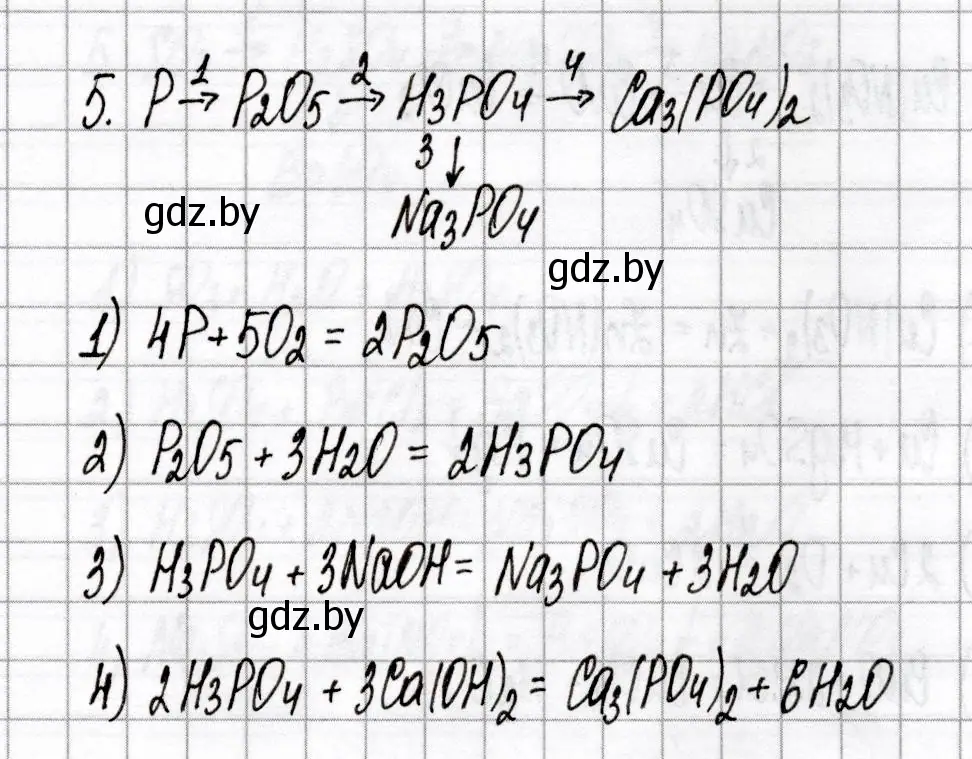 5. P →1 P2O5 →2 H3PO4 →4 Ca3(PO4)2
3 ↓
gdz.by Na3PO4
gdz.by
1) 4P + 5O2 = 2P2O5
2) P2O5 + 3H2O = 2H3PO4
3) H3PO4 + 3NaOH = Na3PO4 + 3H2O
gdz.by
4) 2H3PO4 + 3Ca(OH)2 = Ca3(PO4)2 + 6H2O